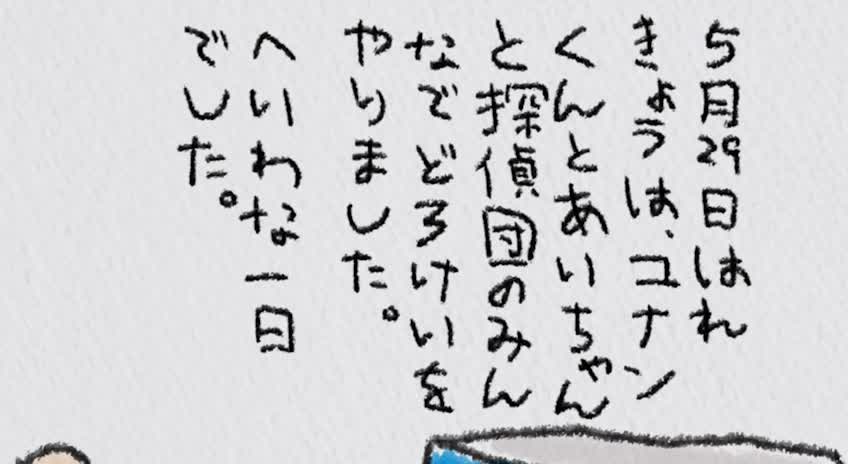 5月29日はれ
きょうは、コナン
くんとあいちゃん
と探偵団のみん
なでどろけいを
やりました。
へいわな一日
でした。